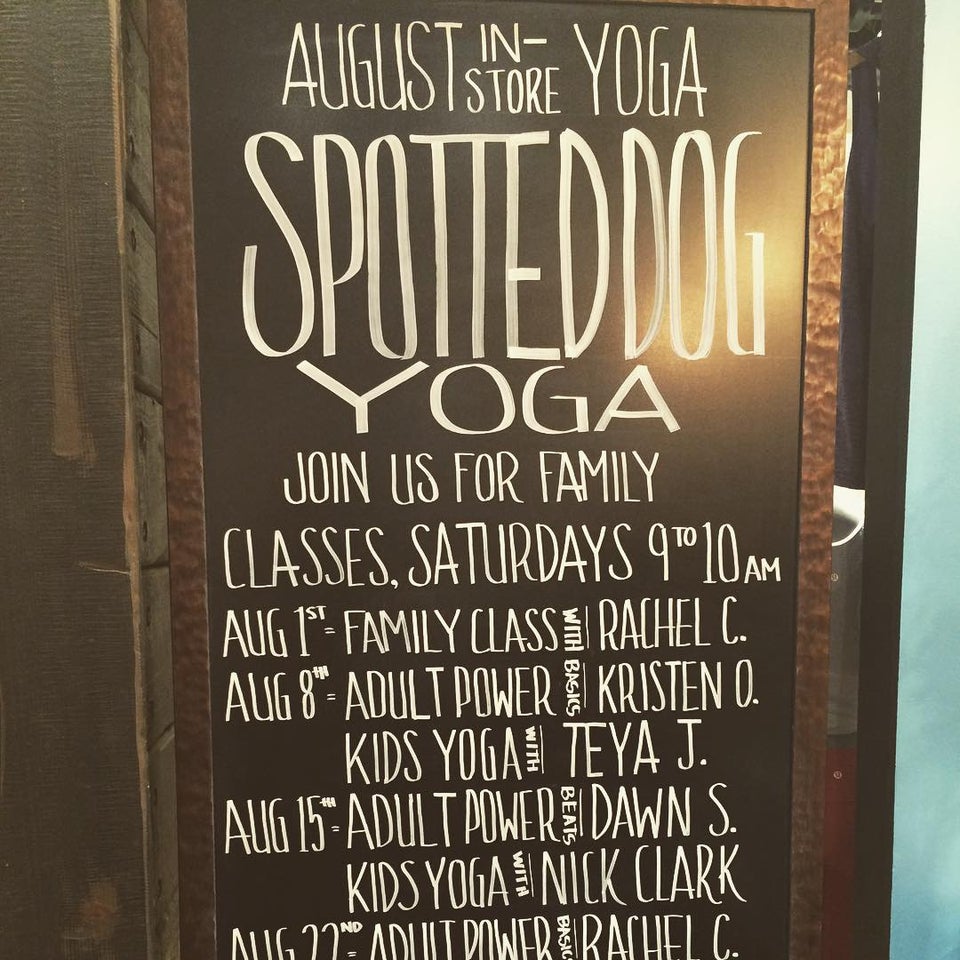 AUGUST IN-STORE YOGA
SPOTTED DOG
YOGA
JOIN US FOR FAMILY
CLASSES, SATURDAYS 9 TO 10 AM
AUG 1ST = FAMILY CLASS WITH RACHEL C.
AUG 8TH = ADULT POWER BASICS KRISTEN O.
KIDS YOGA WITH TEYA J.
AUG 15TH = ADULT POWER BEATS DAWN S.
KIDS YOGA WITH NICK CLARK
AUG 22ND = ADULT POWER BASICS RACHEL C.